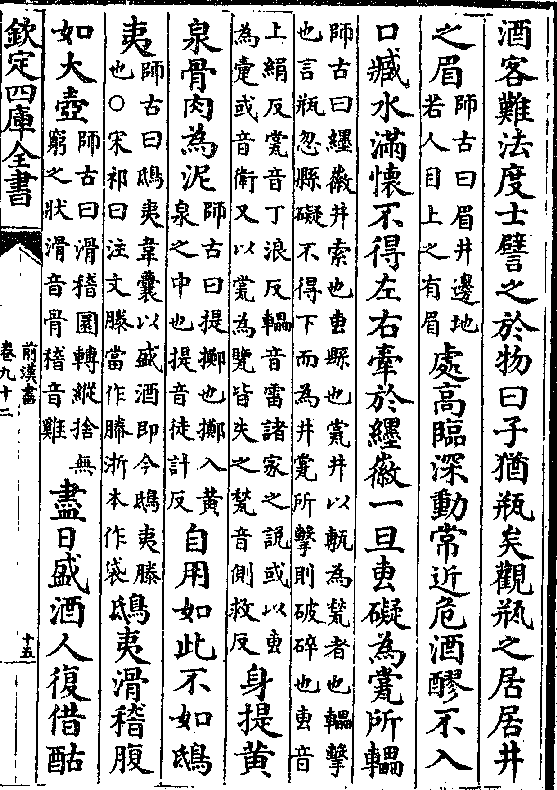 酒客難法度士譬之於物曰子猶瓶矣觀瓶之居居井
之眉
師古曰眉井邊地
若人目上之有眉
處高臨深動常近危酒醪不入
口臧水滿懷不得左右牽於纆徽一旦叀礙為瓽所轠
師古曰纆徽井索也叀縣也瓽井以甎為甃者也轠擊
也言瓶忽縣礙不得下而為井瓽所擊則破碎也叀音
上絹反瓽音丁浪反轠音雷諸家之說或以叀
為疐或音衛又以瓽為甖皆失之甃音側救反
身提黄
泉骨肉為泥
師古曰提擲也擲入黄
泉之中也提音徒計反
自用如此不如鴟
夷
師古曰鴟夷韋囊以盛酒即今鴟夷滕
也○宋祁曰注文滕當作勝浙本作袋
鴟夷滑稽腹
如大壺
師古曰滑稽圜轉縱捨無
窮之狀滑音骨稽音雞
盡日盛酒人復借酤
欽定四庫全書
前漢書
卷九十二
十五